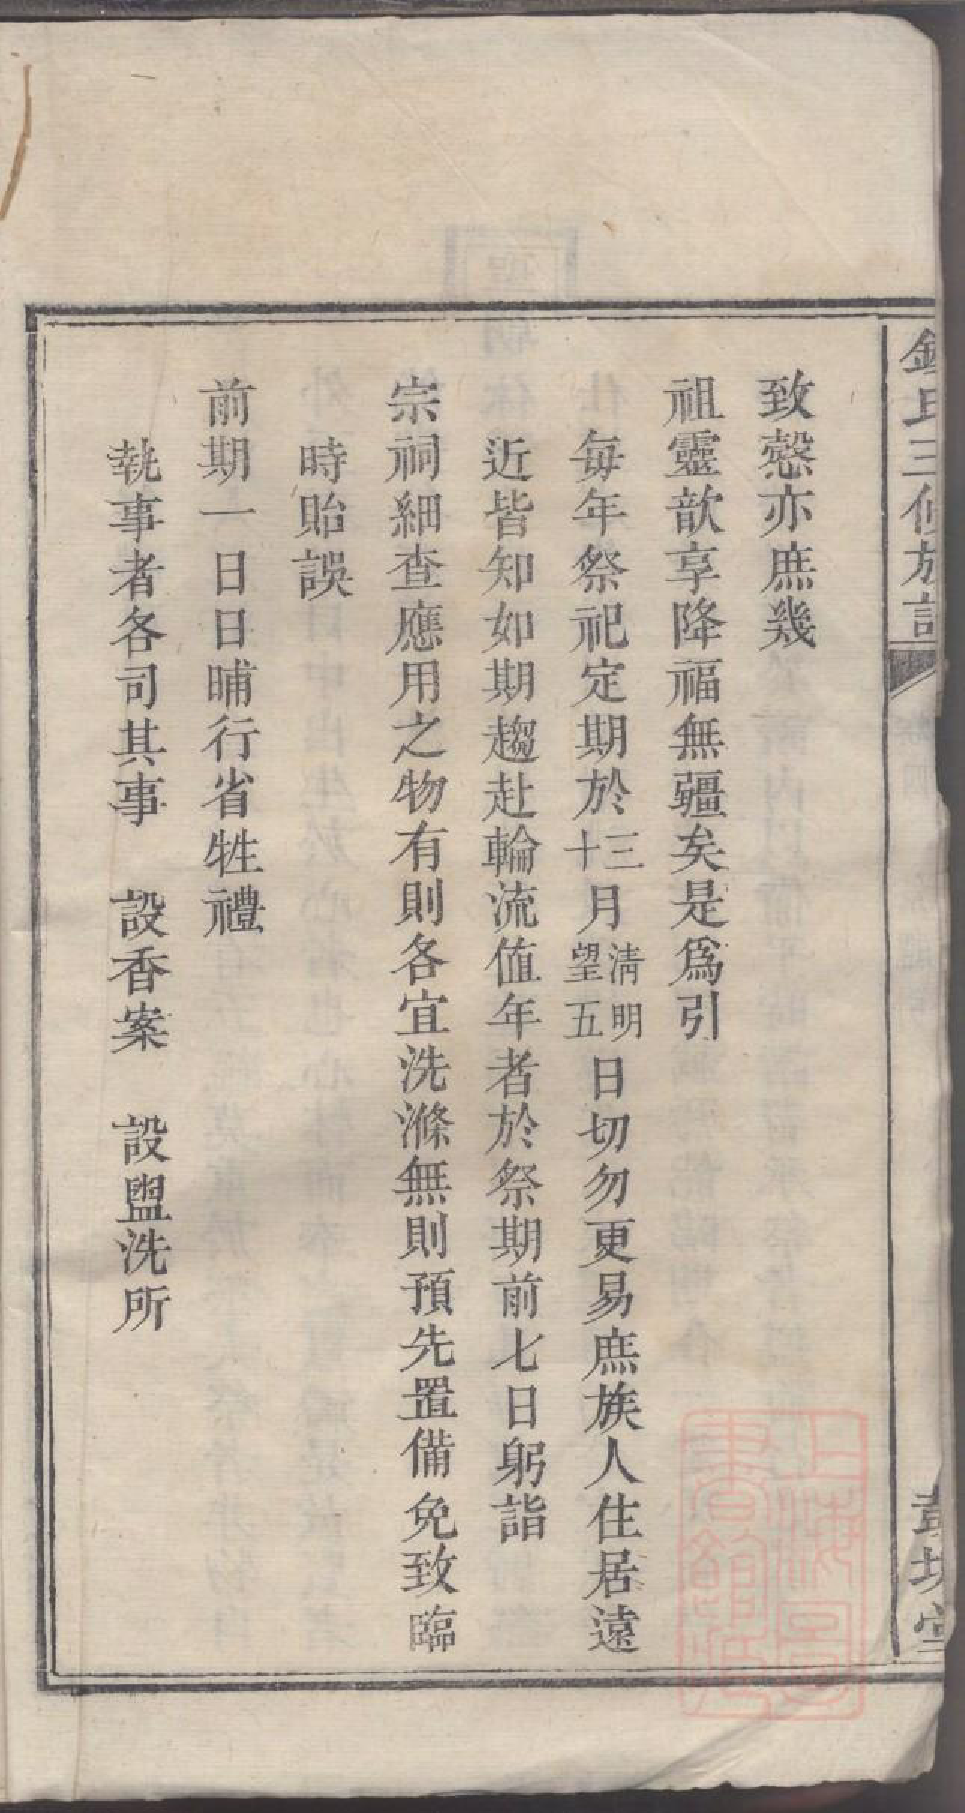 致慤亦庶幾
祖靈歆享降福無疆矣是爲引
每年祭祀定期於三十月清明望五日切勿更易庶族人住居遠
近皆知如期趨赴輪流値年者於祭期前七日躬詣
宗祠細查應用之物有則各宜洗滌無則預先置備免致臨
時貽誤
前期一日日晡行省牲禮
執事者各司其事　設香案　設盥洗所
上海圖書館藏